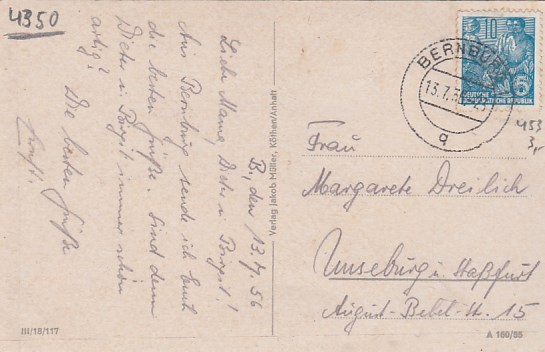 4350
B., den 13.7.56
Liebe Mama, Dete u. Borgst!
Aus Bernburg sende ich Euch
die besten Grüße. Sind denn
Dete u. Borgst immer schön
artig?
Die besten Grüße
Verlag Jakob Müller, Köthen/Anhalt
III/18/117
10
6
DEUTSCHE
DEMOKRATISCHE REPUBLIK
BERNBURG
13.7.56
a
453
3,-
Frau
Margarete Dreilich
Unseburg ü. Staßfurt
August-Bebel-Str. 15
A 160/55